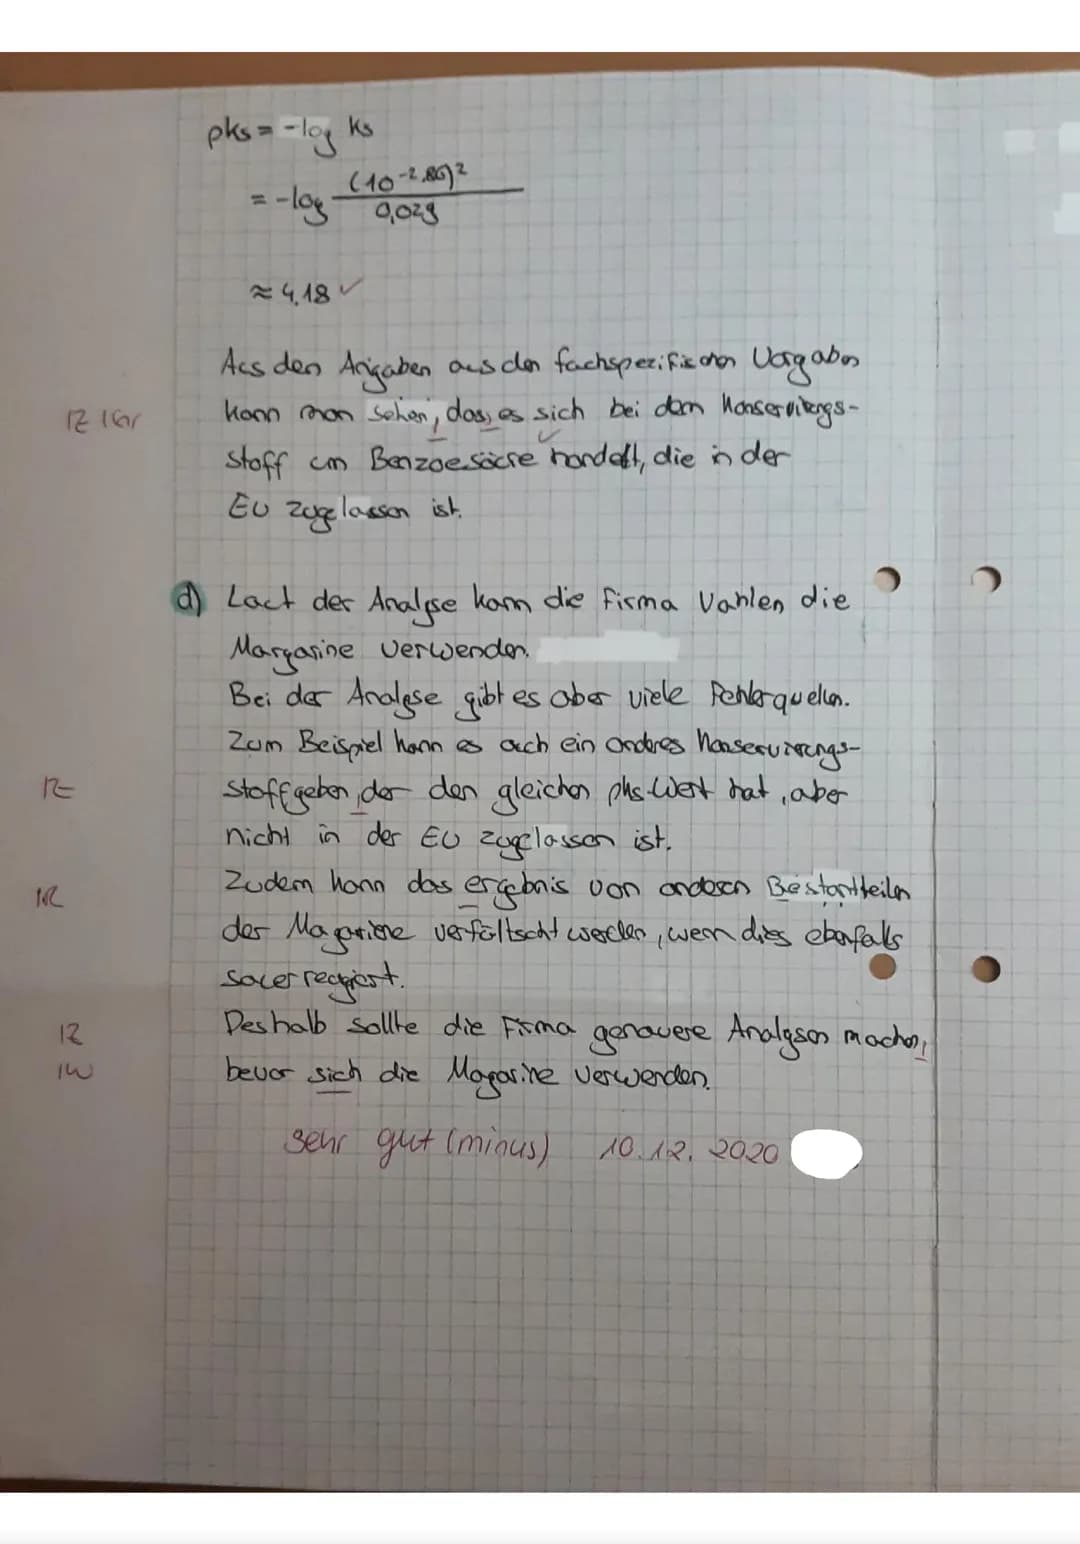 pks = -log Ks
= -log (10^-2,86)^2 / 0,029
≈ 4,18 ✓
Aus den Angaben aus den fachspezifischen Vorgaben
1Z 1Gr kann man sehen, dass es sich bei dem Konservierungs-
stoff um Benzoesäure handelt, die in der
EU zugelassen ist.
d) Laut der Analyse kann die Firma Vahlen die
Margarine verwenden.
Bei der Analyse gibt es aber viele Fehlerquellen.
Zum Beispiel kann es auch ein anderes Konservierungs-
1Z stoff geben, der den gleichen pks-Wert hat, aber
nicht in der EU zugelassen ist.
1R Zudem kann das ergebnis von anderen Bestandteilen
der Magarine verfältscht werden, wenn dies ebenfalls
sauer reagiert.
1Z Deshalb sollte die Firma genauere Analysen machen,
1W bevor sich die Magarine verwenden.
sehr gut (minus) 10.12.2020